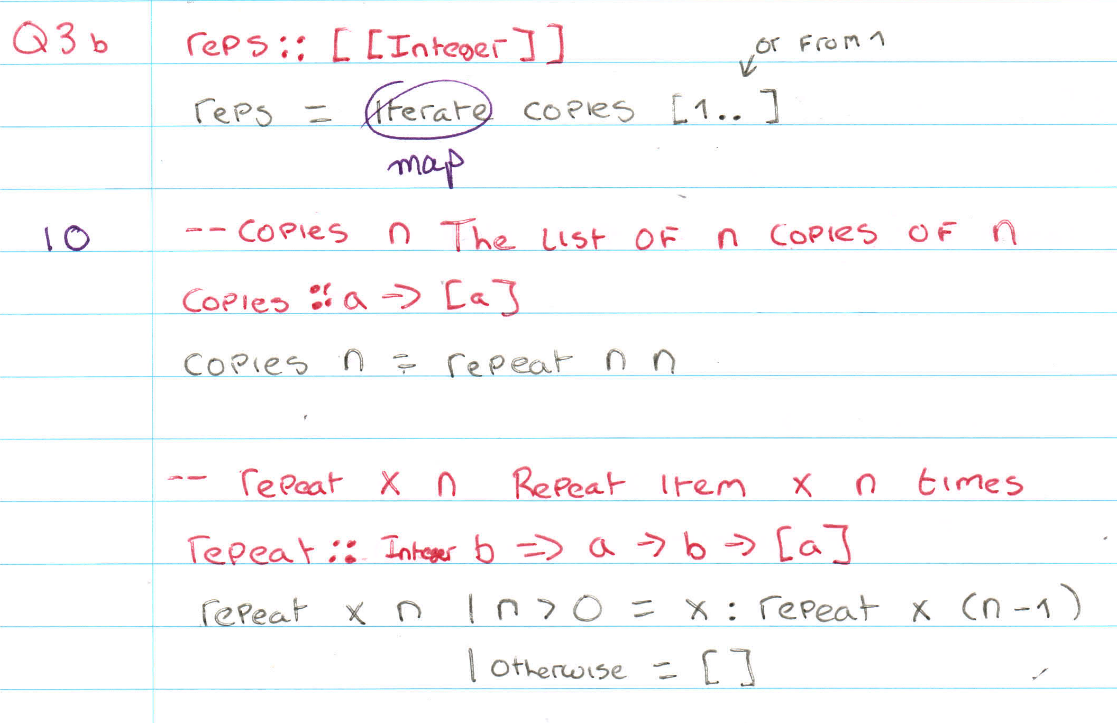 Q3b reps :: [[Integer]]
or From 1
reps = iterate copies [1..]
map
10 -- copies n The list of n copies of n
copies :: a -> [a]
copies n = repeat n n
-- repeat x n Repeat item x n times
repeat :: Integer b => a -> b -> [a]
repeat x n | n > 0 = x : repeat x (n-1)
| otherwise = []